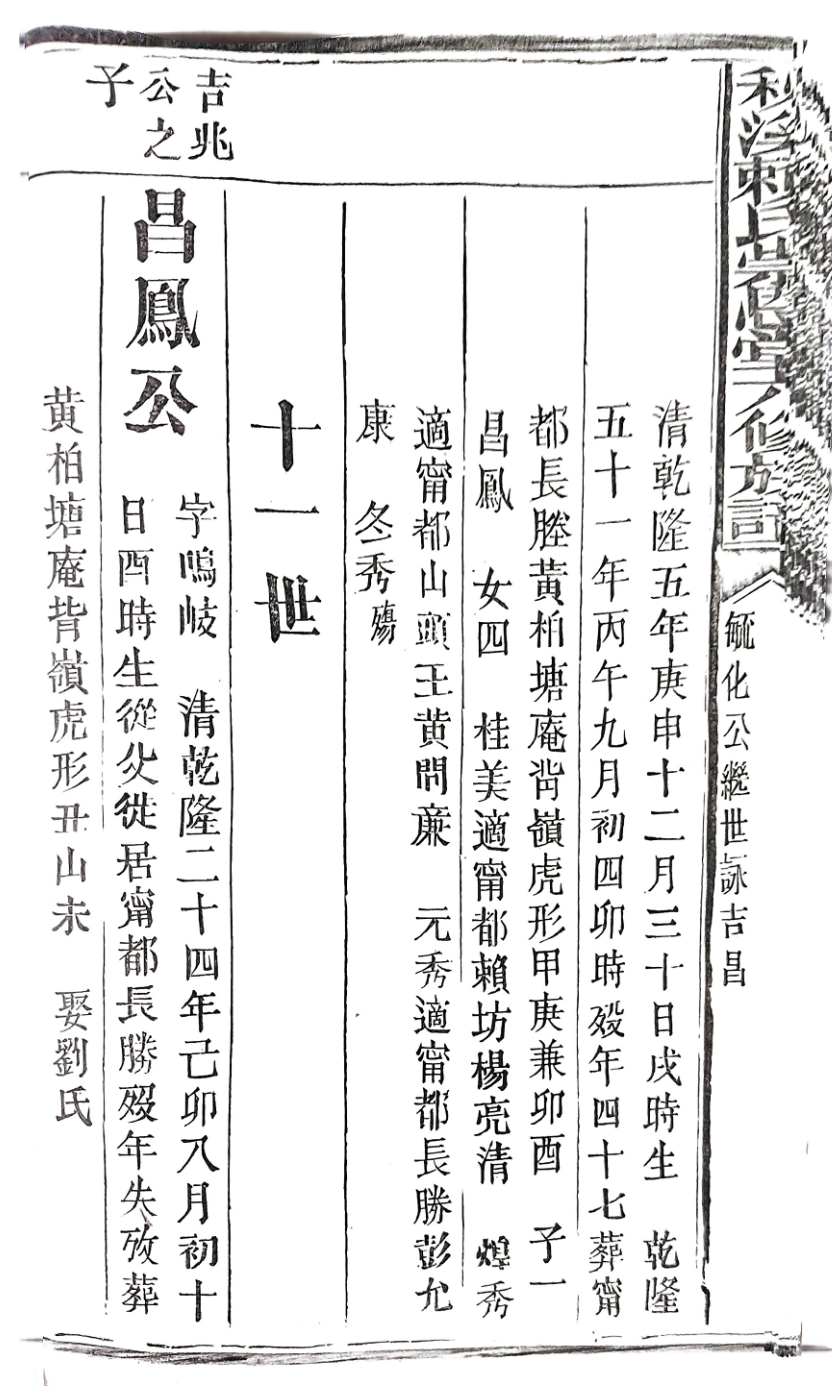 毓化公繼世詠吉昌
清乾隆五年庚申十二月三十日戌時生 乾隆
五十一年丙午九月初四卯時殁年四十七葬甯
都長塍黄柏塘庵背嶺虎形甲庚兼卯酉 子一
昌鳳 女四 桂美適甯都賴坊楊亮清 煌秀
適甯都山頭王黄問亷 元秀適甯都長勝彭允
康 冬秀殤
十一世
吉兆
公之
子
昌鳳公
字鳴岐 清乾隆二十四年己卯八月初十
日酉時生從父徙居甯都長勝殁年失攷葬
黄柏塘庵背嶺虎形丑山未 娶劉氏